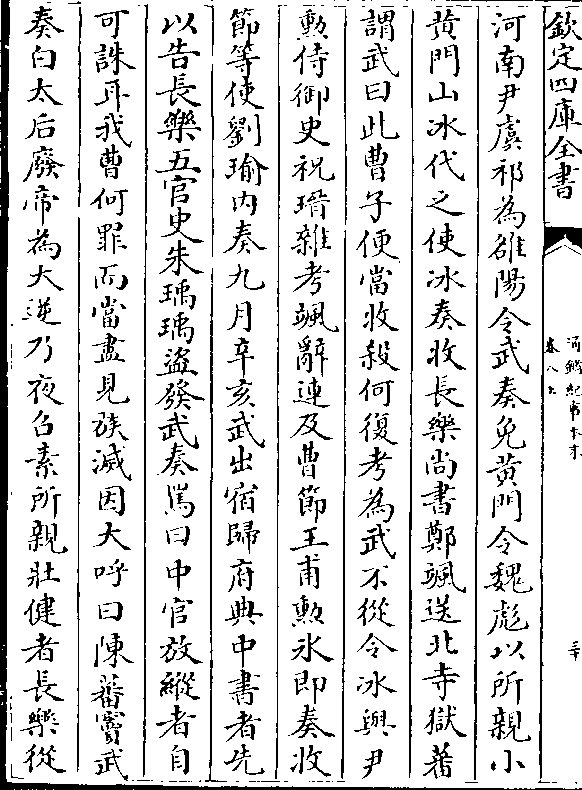 欽定四庫全書
通鑑紀事本末
卷八上
三十
河南尹虞祁為雒陽令武奏免黃門令魏彪以所親小
黃門山冰代之使冰奏收長樂尚書鄭颯送北寺獄蕃
謂武曰此曹子便當收殺何復考為武不從令冰與尹
勲侍御史祝瑨雜考颯辭連及曹節王甫勲氷即奏收
節等使劉瑜内奏九月辛亥武出宿歸府典中書者先
以告長樂五官史朱瑀瑀盜發武奏罵曰中官放縱者自
可誅耳我曹何罪而當盡見族滅因大呼曰陳蕃竇武
奏白太后廢帝為大逆乃夜召素所親壯健者長樂從